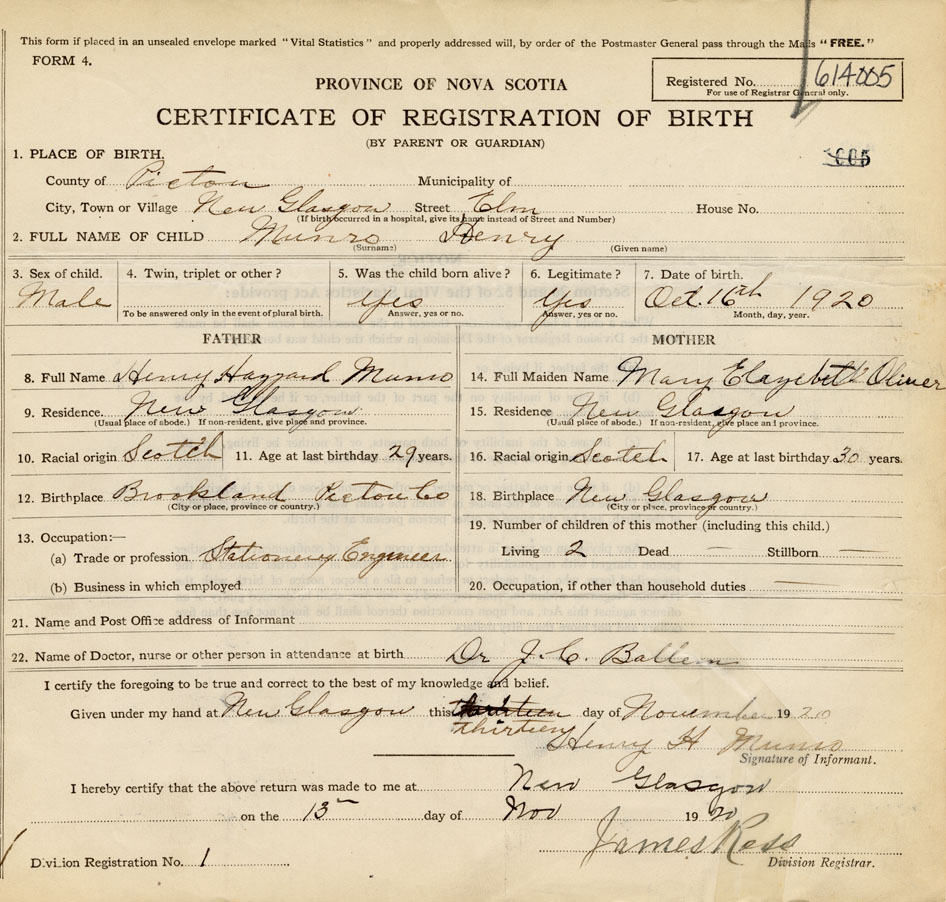 This form if placed in an unsealed envelope marked "Vital Statistics" and properly addressed will, by order of the Postmaster General pass through the Mails "FREE."
FORM 4.
Registered No. 614005
For use of Registrar General only.
PROVINCE OF NOVA SCOTIA
CERTIFICATE OF REGISTRATION OF BIRTH
(BY PARENT OR GUARDIAN)
005
1. PLACE OF BIRTH.
County of Pictou Municipality of
City, Town or Village New Glasgow Street Elm House No.
(If birth occurred in a hospital, give its name instead of Street and Number)
2. FULL NAME OF CHILD Munro Henry
(Surname) (Given name)
3. Sex of child. 4. Twin, triplet or other? 5. Was the child born alive? 6. Legitimate? 7. Date of birth.
Male Yes Yes Oct. 16th 1920
To be answered only in the event of plural birth. Answer, yes or no. Answer, yes or no. Month, day, year.
FATHER MOTHER
8. Full Name Henry Munro 14. Full Maiden Name Mary Elazebeth Oliver
9. Residence. New Glasgow 15. Residence New Glasgow
(Usual place of abode.) If non-resident, give place and province. (Usual place of abode.) If non-resident, give place and province.
10. Racial origin Scotch 11. Age at last birthday 29 years. 16. Racial origin Scotch 17. Age at last birthday 30 years.
12. Birthplace Brookland Pictou Co 18. Birthplace New Glasgow
(City or place, province or country.) (City or place, province or country.)
13. Occupation:— 19. Number of children of this mother (including this child.)
(a) Trade or profession Stationery Engineer Living 2 Dead — Stillborn —
(b) Business in which employed 20. Occupation, if other than household duties —
21. Name and Post Office address of Informant
22. Name of Doctor, nurse or other person in attendance at birth Dr J. C. Ballem
I certify the foregoing to be true and correct to the best of my knowledge and belief.
Given under my hand at New Glasgow this day of November 1920
thirtieny Henry H Munro
Signature of Informant.
I hereby certify that the above return was made to me at New Glasgow
on the 13 day of Nov 1920
James Ross
Division Registration No. 1 Division Registrar.